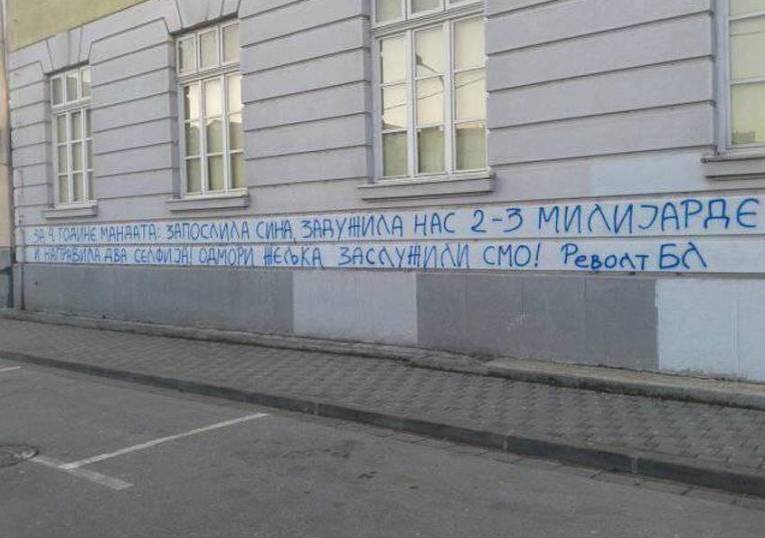 ЗА 4 ГОДИНЕ МАНДАТА: ЗАПОСЛИЛА СИНА, ЗАДУЖИЛА НАС 2-3 МИЛИЈАРДЕ
И НАПРАВИЛА ДВА СЕЛФИЈА! ОДМОРИ ЖЕЉКА ЗАСЛУЖИЛИ СМО! Револт БЛ